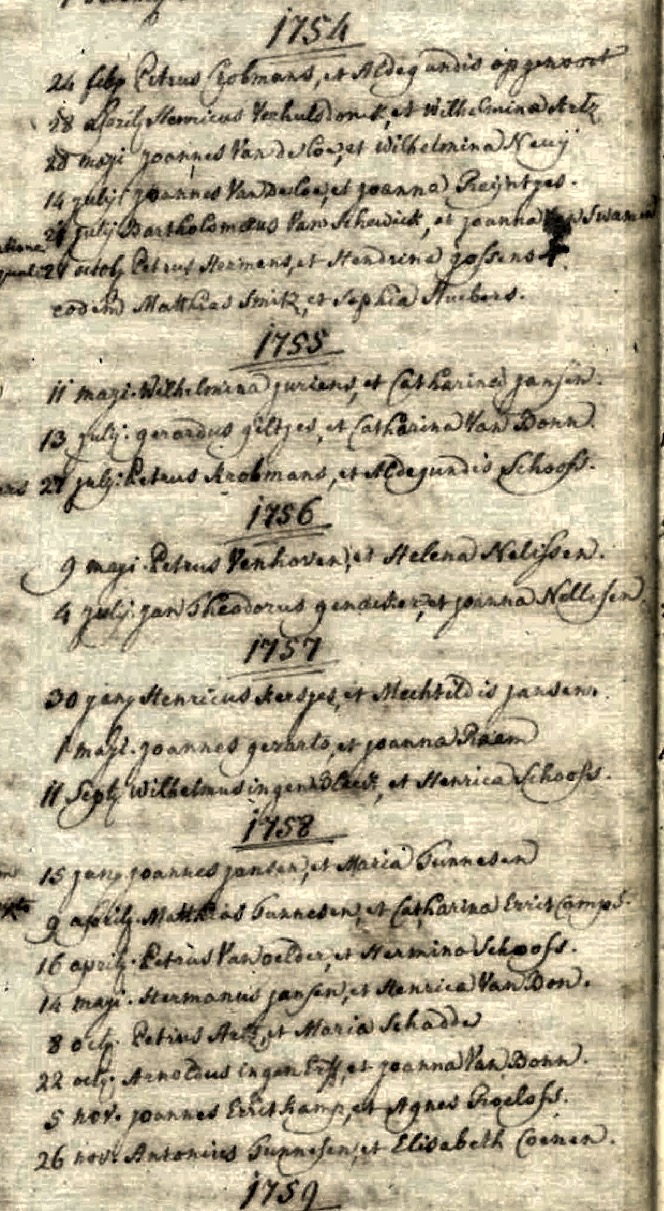 1754
24 feb Petrus Crobmans, et Aldegundis opgenoort
28 april Henricus Verhulsdonck, et Wilhelmina Artz
28 maji Joannes Van de Loe, et Wilhelmina Neuij
14 julij Joannes Van de Loe, et Joanna Reijntges.
21 julij Bartholomæus Van Schewick, et Joanna Van Swanen
27 octob Petrus Hermens, et Hendrina gossens
eodem Matthias Smitz, et Sophia Huebers.
1755
11 maji Wilhelmina Jurians, et Catharina Jansen.
13 julij gerardus giltjes, et Catharina Van Bonn.
27 julij Petrus Krobmans, et Aldegundis Schooss.
1756
9 maji Petrus Venhoven, et Helena Nelissen.
4 julij Jan Theodorus, et Joanna Nellesen.
1757
30 jany Henricus Kersjes, et Mechtildis Jansen.
1 maji Joannes gerarts, et Joanna Raam
11 Septb Wilhelmus ingen Bleeck, et Henrica Schooss.
1758
15 jany Joannes Jansen, et Maria Tunnesen
9 aprilij Matthias Tunnesen, et Catharina Errit Camps.
16 aprilij Petrus Van oelder, et Hermina Schooss.
14 maji Hermanus Jansen, et Henrica Van Bon.
8 octb Petrus Artz, et Maria Schadde
22 octb Arnoldus ingen Eff, et Joanna Van Bonn.
5 nov. Joannes Errit Kamp, et Agnes Roeloss.
26 nov. Antonius Tunnesen, et Elisabeth Coenen.
1759